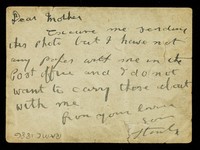 Dear Mother
Excuse me sending
this photo but I have not
any paper with me in the
Post office and I do not
want to carry these about
with me
from your
son